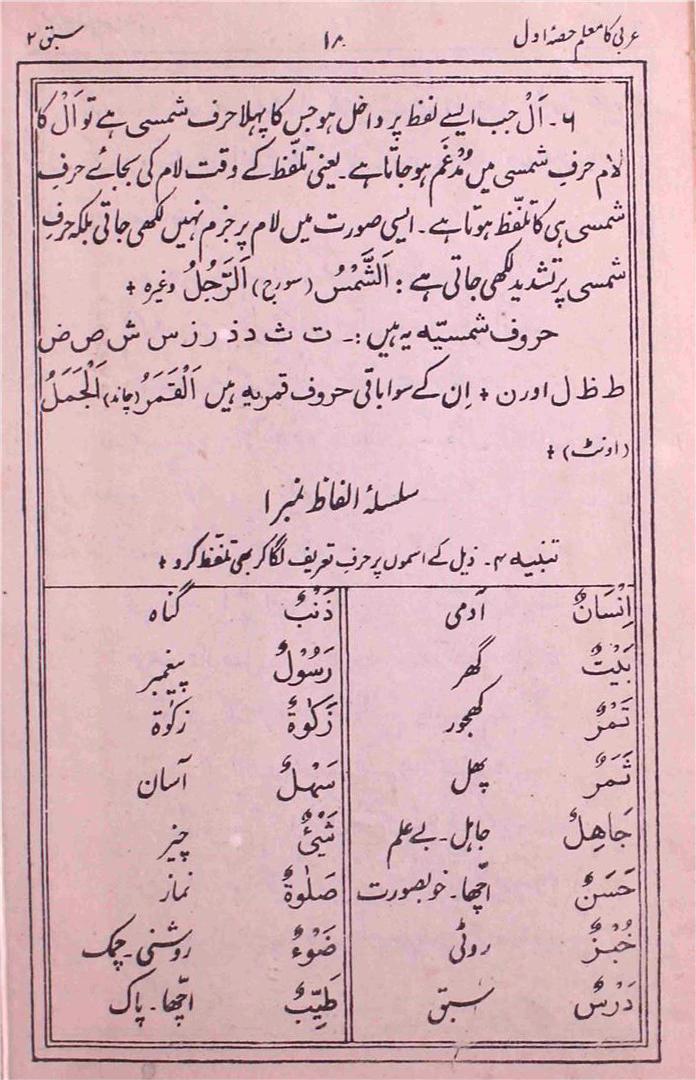 عربی کا معلم حصۂ اول ۱۸ سبق ۲
۶۔ اَلْ جب ایسے لفظ پر داخل ہو جس کا پہلا حرف شمسی ہے تو اَلْ کا
لام حرفِ شمسی میں مُدْغَم ہو جاتا ہے۔ یعنی تلفّظ کے وقت لام کی بجائے حرفِ
شمسی ہی کا تلفّظ ہوتا ہے۔ ایسی صورت میں لام پر جزم نہیں لکھی جاتی بلکہ حرفِ
شمسی پر تشدید لکھی جاتی ہے : اَلشَّمْسُ (سورج) اَلرَّجُلُ وغیرہ +
حروف شمسیّہ یہ ہیں :۔ ت ث د ذ ر ز س ش ص ض
ط ظ ل اور ن + اِن کے سوا باقی حروف قمریہ ہیں اَلْقَمَرُ (چاند) اَلْجَمَلُ
(اونٹ) +
سلسلۂ الفاظ نمبر ۱
تنبیہ ۴۔ ذیل کے اسموں پر حرفِ تعریف لگا کر بھی تلفّظ کرو +
اِنْسَانٌ آدمی ذَنْبٌ گناہ
بَيْتٌ گھر رَسُوْلٌ پیغمبر
تَمْرٌ کھجور زَكٰوةٌ زکوٰة
ثَمَرٌ پھل سَهْلٌ آسان
جَاهِلٌ جاہل۔ بے علم شَيْئٌ چیز
حَسَنٌ اچّھا۔ خوبصورت صَلٰوةٌ نماز
خُبْزٌ روٹی ضَوْءٌ روشنی۔ چمک
دَرْسٌ سبق طَيِّبٌ اچّھا۔ پاک